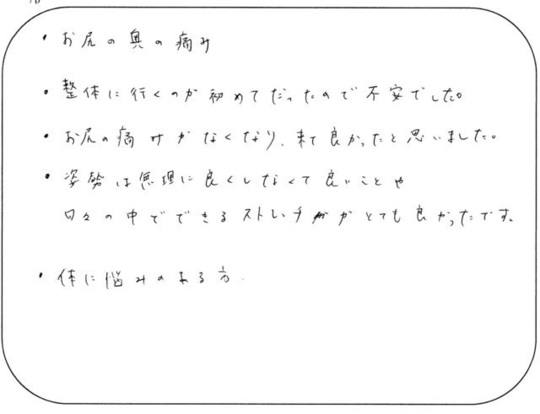 ・お尻の奥の痛み
・整体に行くのが初めてだったので不安でした。
・お尻の痛みがなくなり、来て良かったと思いました。
・姿勢は無理に良くしなくて良いことや
日々の中でできるストレッチがとても良かったです。
・体に悩みのある方